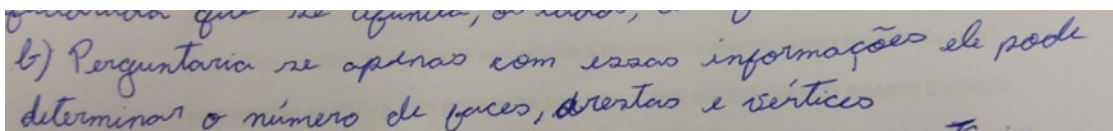 que se
b) Perguntaria se apenas com essas informações ele pode
determinar o número de faces, arestas e vértices